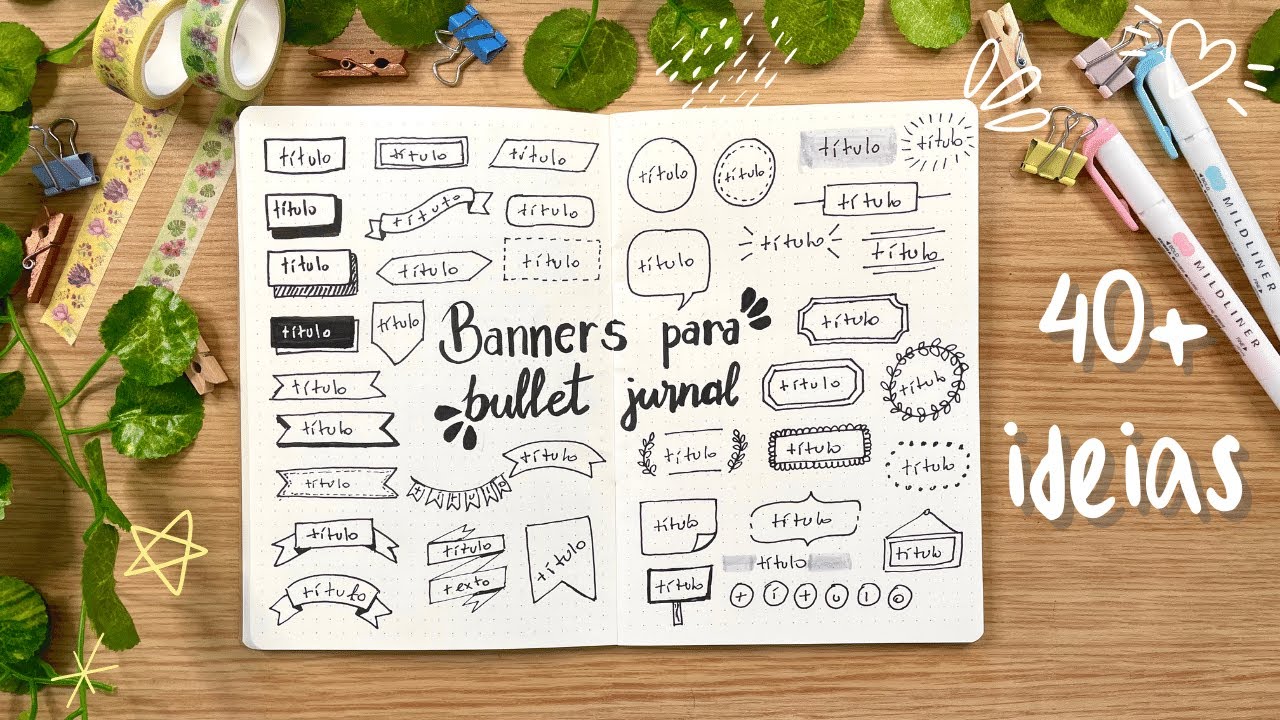 título
título
título
título
título
título
título
título
título
título
título
título
título
título
título
título
título
texto
título
título
Banners para
bullet jurnal
título
título
título
título
título
título
título
título
título
título
título
título
título
título
título
título
título
título
título
título
t í t u l o
40+
ideias
MILDLINER
MILDLINER